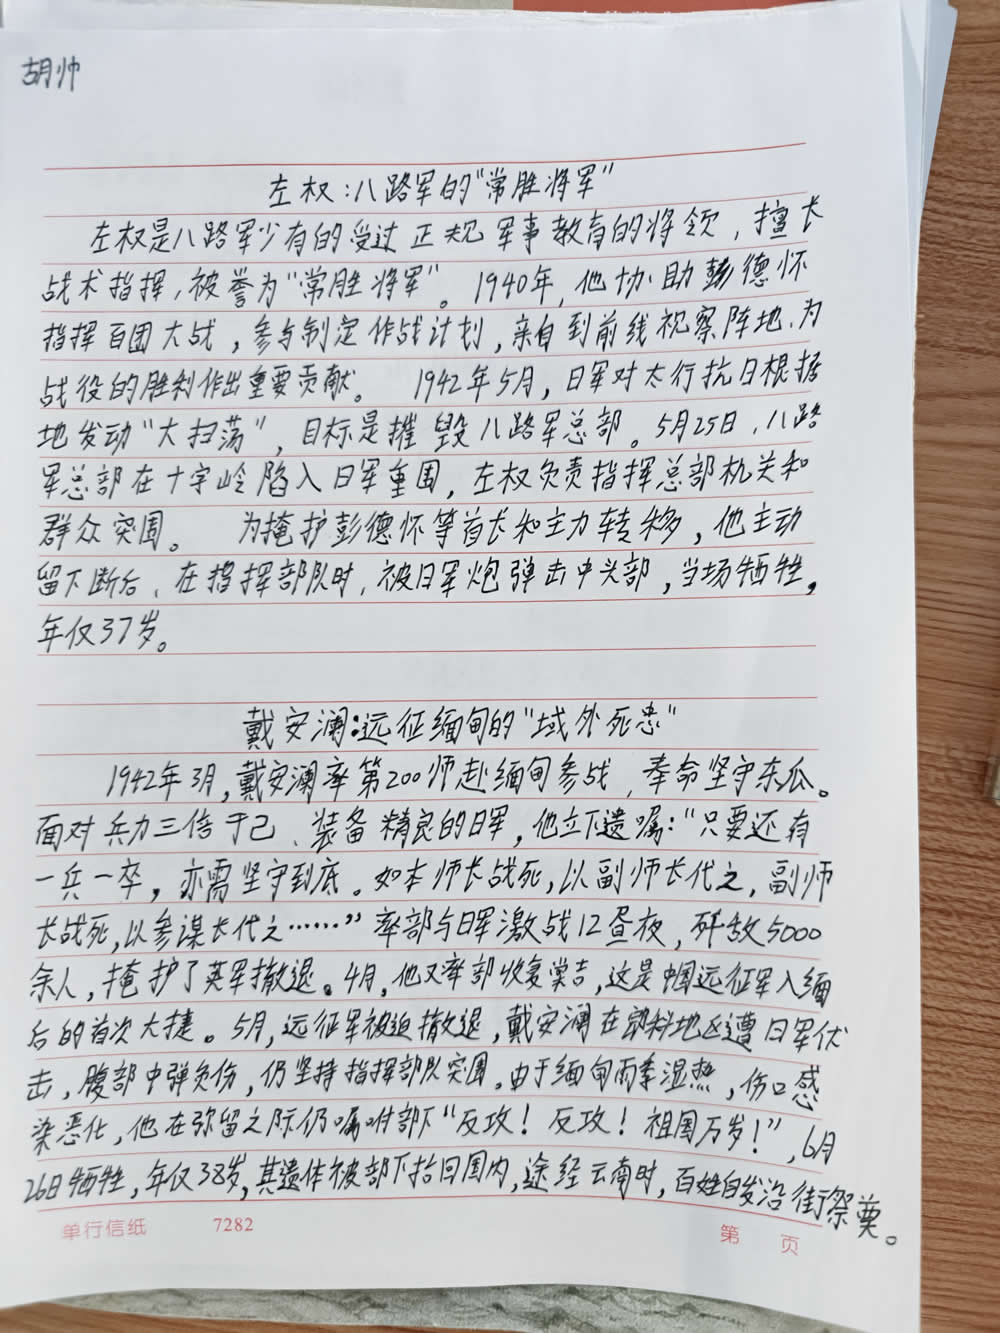 胡帅
左权:八路军的“常胜将军”
左权是八路军少有的受过正规军事教育的将领，擅长
战术指挥，被誉为“常胜将军”。1940年，他协助彭德怀
指挥百团大战，参与制定作战计划，亲自到前线视察阵地，为
战役的胜利作出重要贡献。 1942年5月，日军对太行抗日根据
地发动“大扫荡”，目标是摧毁八路军总部。5月25日，八路
军总部在十字岭陷入日军重围，左权负责指挥总部机关和
群众突围。 为掩护彭德怀等首长和主力转移，他主动
留下断后，在指挥部队时，被日军炮弹击中头部，当场牺牲，
年仅37岁。
戴安澜:远征缅甸的“域外死忠”
1942年3月，戴安澜率第200师赴缅甸参战，奉命坚守东瓜。
面对兵力三倍于己、装备精良的日军，他立下遗嘱:“只要还有
一兵一卒，亦需坚守到底。如本师长战死，以副师长代之，副师
长战死，以参谋长代之……”率部与日军激战12昼夜，歼敌5000
余人，掩护了英军撤退。4月，他又率部收复棠吉，这是中国远征军入缅
后的首次大捷。5月，远征军被迫撤退，戴安澜在郎科地区遭日军伏
击，腹部中弹负伤，仍坚持指挥部队突围。由于缅甸雨季湿热，伤口感
染恶化，他在弥留之际仍嘱咐部下“反攻！反攻！祖国万岁！”，6月
26日牺牲，年仅38岁，其遗体被部下抬回国内，途经云南时，百姓自发沿街祭奠。
单行信纸 7282 第 页